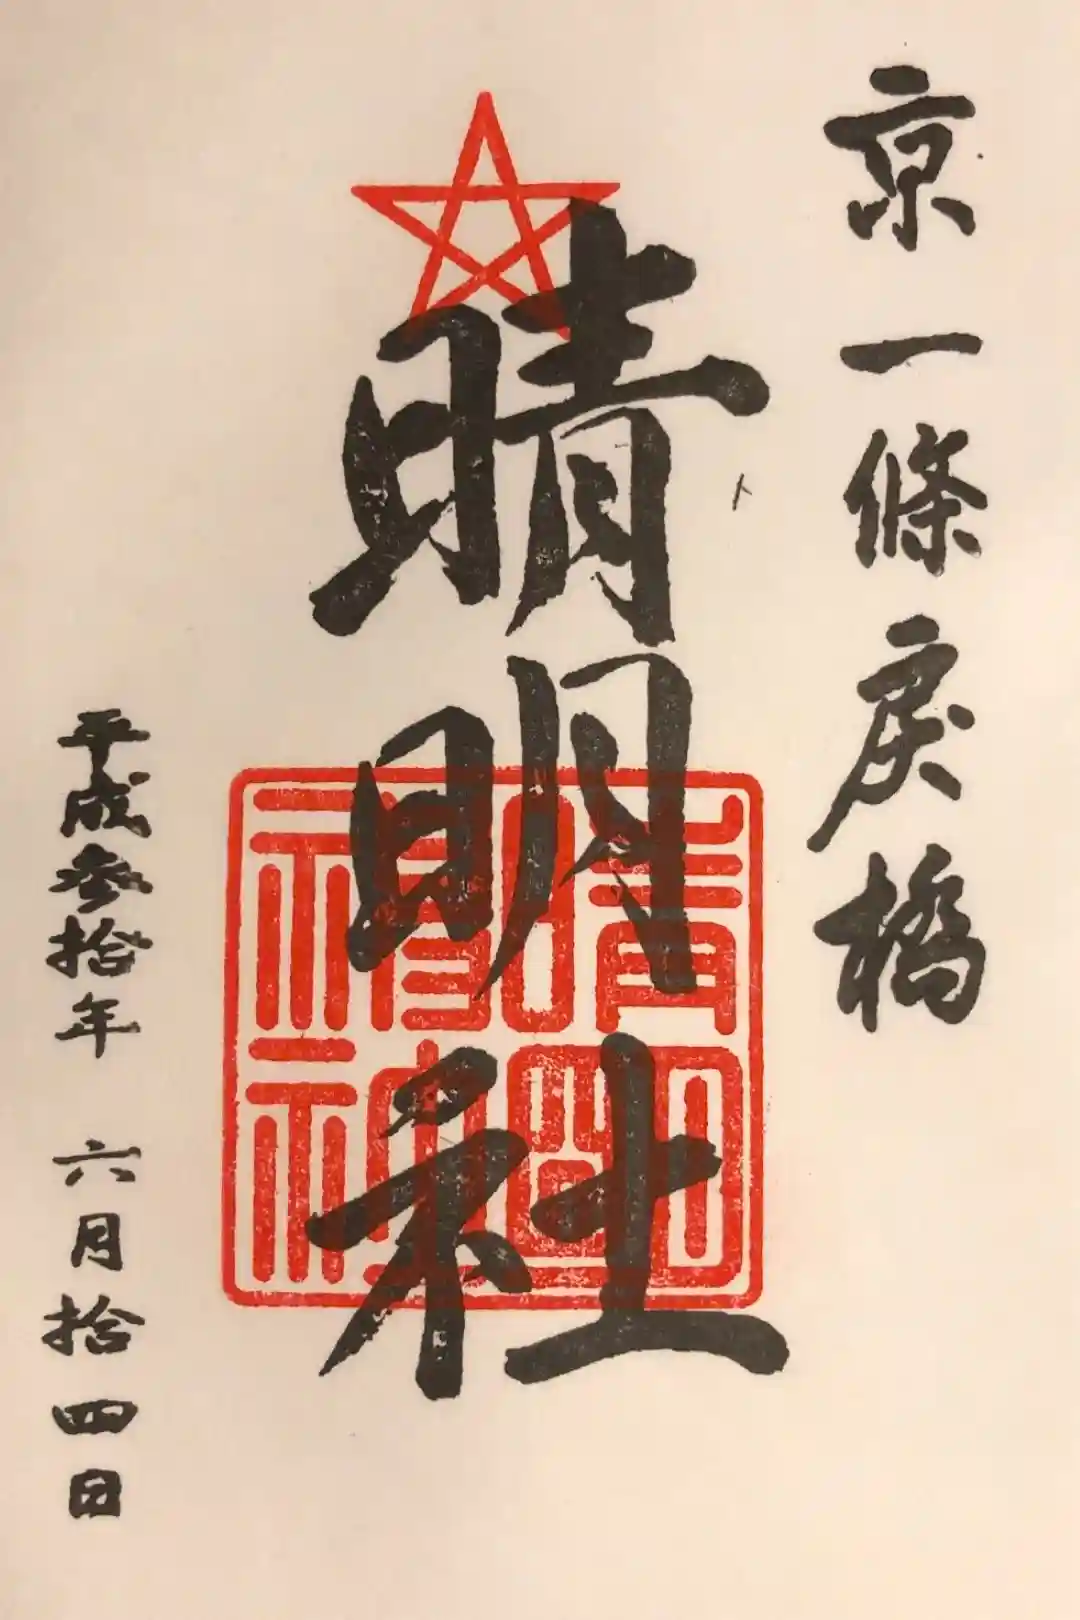 京一條戻橋
晴明社
晴明神社
平成参拾年 六月拾四日